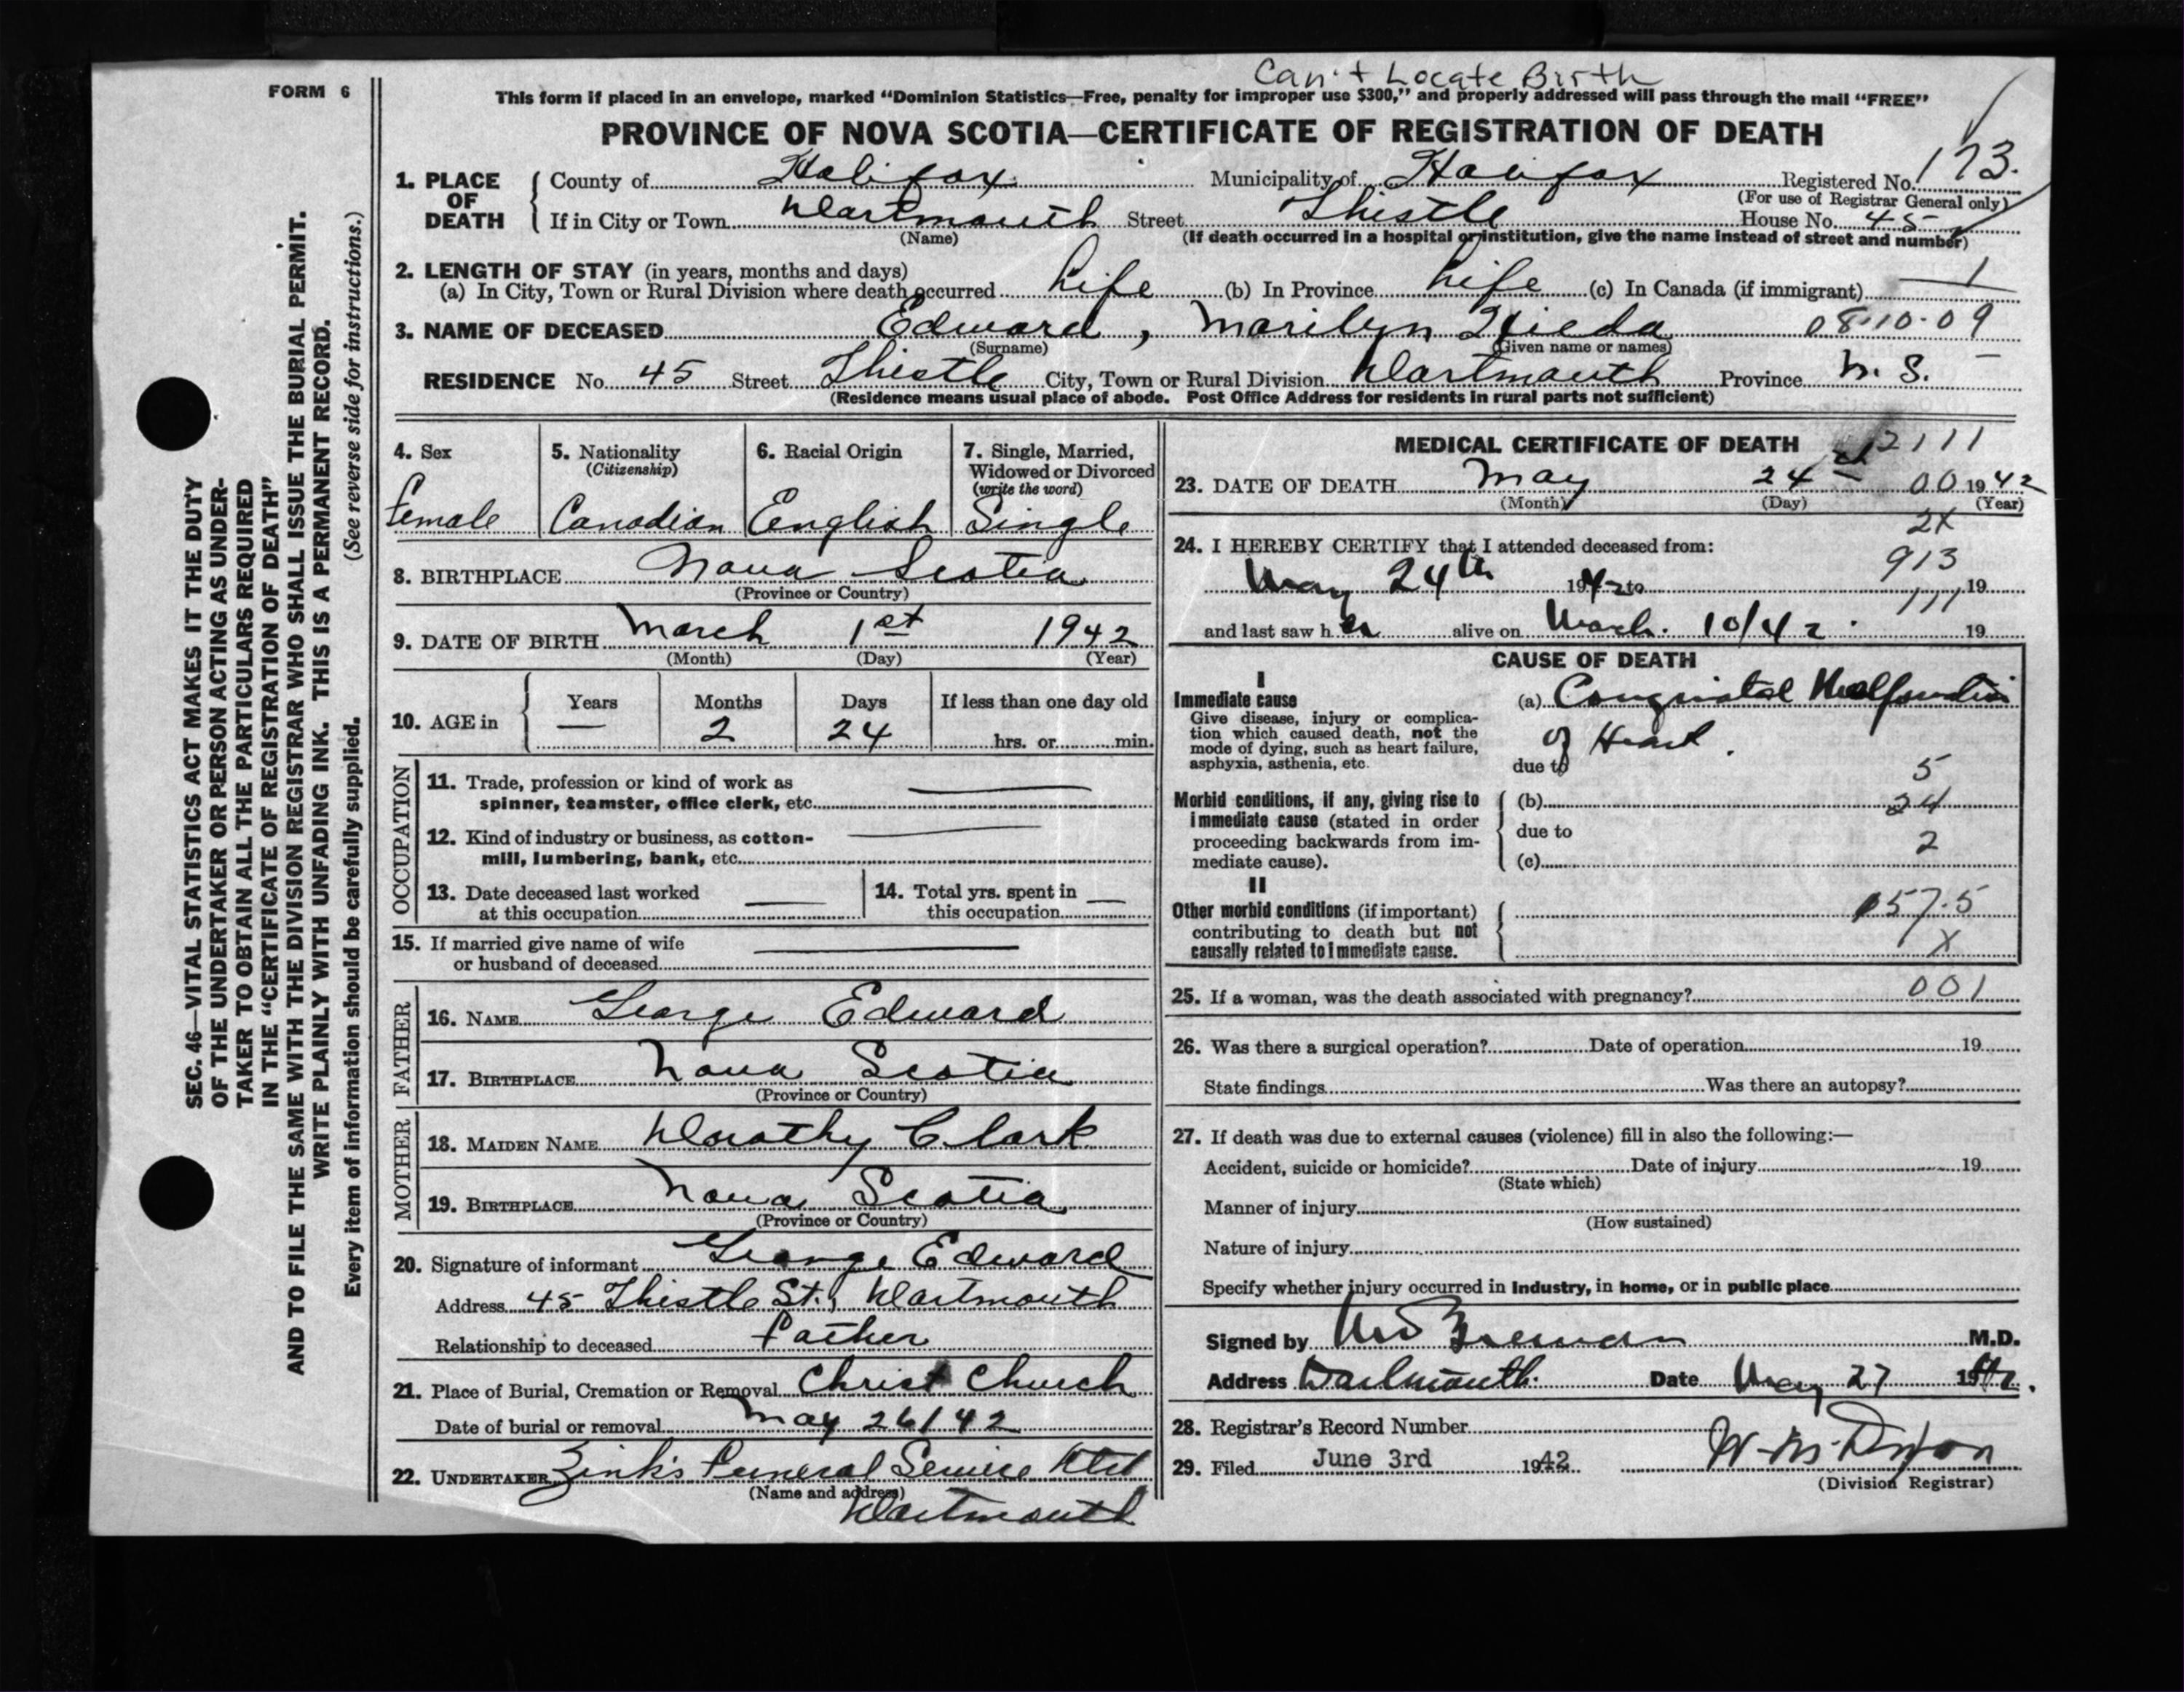 FORM 6
Can't Locate Birth
This form if placed in an envelope, marked "Dominion Statistics—Free, penalty for improper use $300," and properly addressed will pass through the mail "FREE"
PROVINCE OF NOVA SCOTIA—CERTIFICATE OF REGISTRATION OF DEATH
1. PLACE OF DEATH County of Halifax Municipality of Halifax Registered No. 173.
(For use of Registrar General only)
If in City or Town Dartmouth Street Thistle House No. 45
(Name) (If death occurred in a hospital or institution, give the name instead of street and number)
2. LENGTH OF STAY (in years, months and days)
(a) In City, Town or Rural Division where death occurred Life (b) In Province Life (c) In Canada (if immigrant) — 1
3. NAME OF DECEASED Edward, Marilyn 08-10-09
(Surname) (Given name or names)
RESIDENCE No. 45 Street Thistle City, Town or Rural Division Dartmouth Province N. S. —
(Residence means usual place of abode. Post Office Address for residents in rural parts not sufficient)
4. Sex Female
5. Nationality (Citizenship) Canadian
6. Racial Origin English
7. Single, Married, Widowed or Divorced (write the word) Single
8. BIRTHPLACE Nova Scotia
(Province or Country)
9. DATE OF BIRTH March 1st 1942
(Month) (Day) (Year)
10. AGE in Years — Months 2 Days 24 If less than one day old
hrs. or min.
OCCUPATION
11. Trade, profession or kind of work as
spinner, teamster, office clerk, etc. —
12. Kind of industry or business, as cotton-
mill, lumbering, bank, etc. —
13. Date deceased last worked
at this occupation —
14. Total yrs. spent in
this occupation —
15. If married give name of wife
or husband of deceased —
FATHER
16. NAME George Edward
17. BIRTHPLACE Nova Scotia
(Province or Country)
MOTHER
18. MAIDEN NAME Dorothy Clark
19. BIRTHPLACE Nova Scotia
(Province or Country)
20. Signature of informant George Edward
Address 45 Thistle St., Dartmouth
Relationship to deceased Father
21. Place of Burial, Cremation or Removal Christ Church
Date of burial or removal May 26/42
22. UNDERTAKER Zink's Funeral Service Ltd
(Name and address)
Dartmouth
MEDICAL CERTIFICATE OF DEATH
2111
23. DATE OF DEATH May 24 00 1942
(Month) (Day) (Year)
2X
24. I HEREBY CERTIFY that I attended deceased from:
913
May 24th 1942 to 19
111
and last saw h er alive on March. 10/42. 19
CAUSE OF DEATH
I
Immediate cause
Give disease, injury or complica-
tion which caused death, not the
mode of dying, such as heart failure,
asphyxia, asthenia, etc.
(a) Congenital Malformation
of Heart.
due to
5
Morbid conditions, if any, giving rise to
immediate cause (stated in order
proceeding backwards from im-
mediate cause).
(b) 24
due to
2
(c)
II
Other morbid conditions (if important)
contributing to death but not
causally related to immediate cause.
157.5
X
25. If a woman, was the death associated with pregnancy? 001
26. Was there a surgical operation? Date of operation 19
State findings Was there an autopsy?
27. If death was due to external causes (violence) fill in also the following:—
Accident, suicide or homicide? Date of injury 19
(State which)
Manner of injury
(How sustained)
Nature of injury
Specify whether injury occurred in industry, in home, or in public place
Signed by M.D.
Address Dartmouth. Date May 27 1942.
28. Registrar's Record Number
29. Filed June 3rd 1942
(Division Registrar)
SEC. 46—VITAL STATISTICS ACT MAKES IT THE DUTY
OF THE UNDERTAKER OR PERSON ACTING AS UNDER-
TAKER TO OBTAIN ALL THE PARTICULARS REQUIRED
IN THE "CERTIFICATE OF REGISTRATION OF DEATH"
AND TO FILE THE SAME WITH THE DIVISION REGISTRAR WHO SHALL ISSUE THE BURIAL PERMIT.
WRITE PLAINLY WITH UNFADING INK. THIS IS A PERMANENT RECORD.
Every item of information should be carefully supplied. (See reverse side for instructions.)